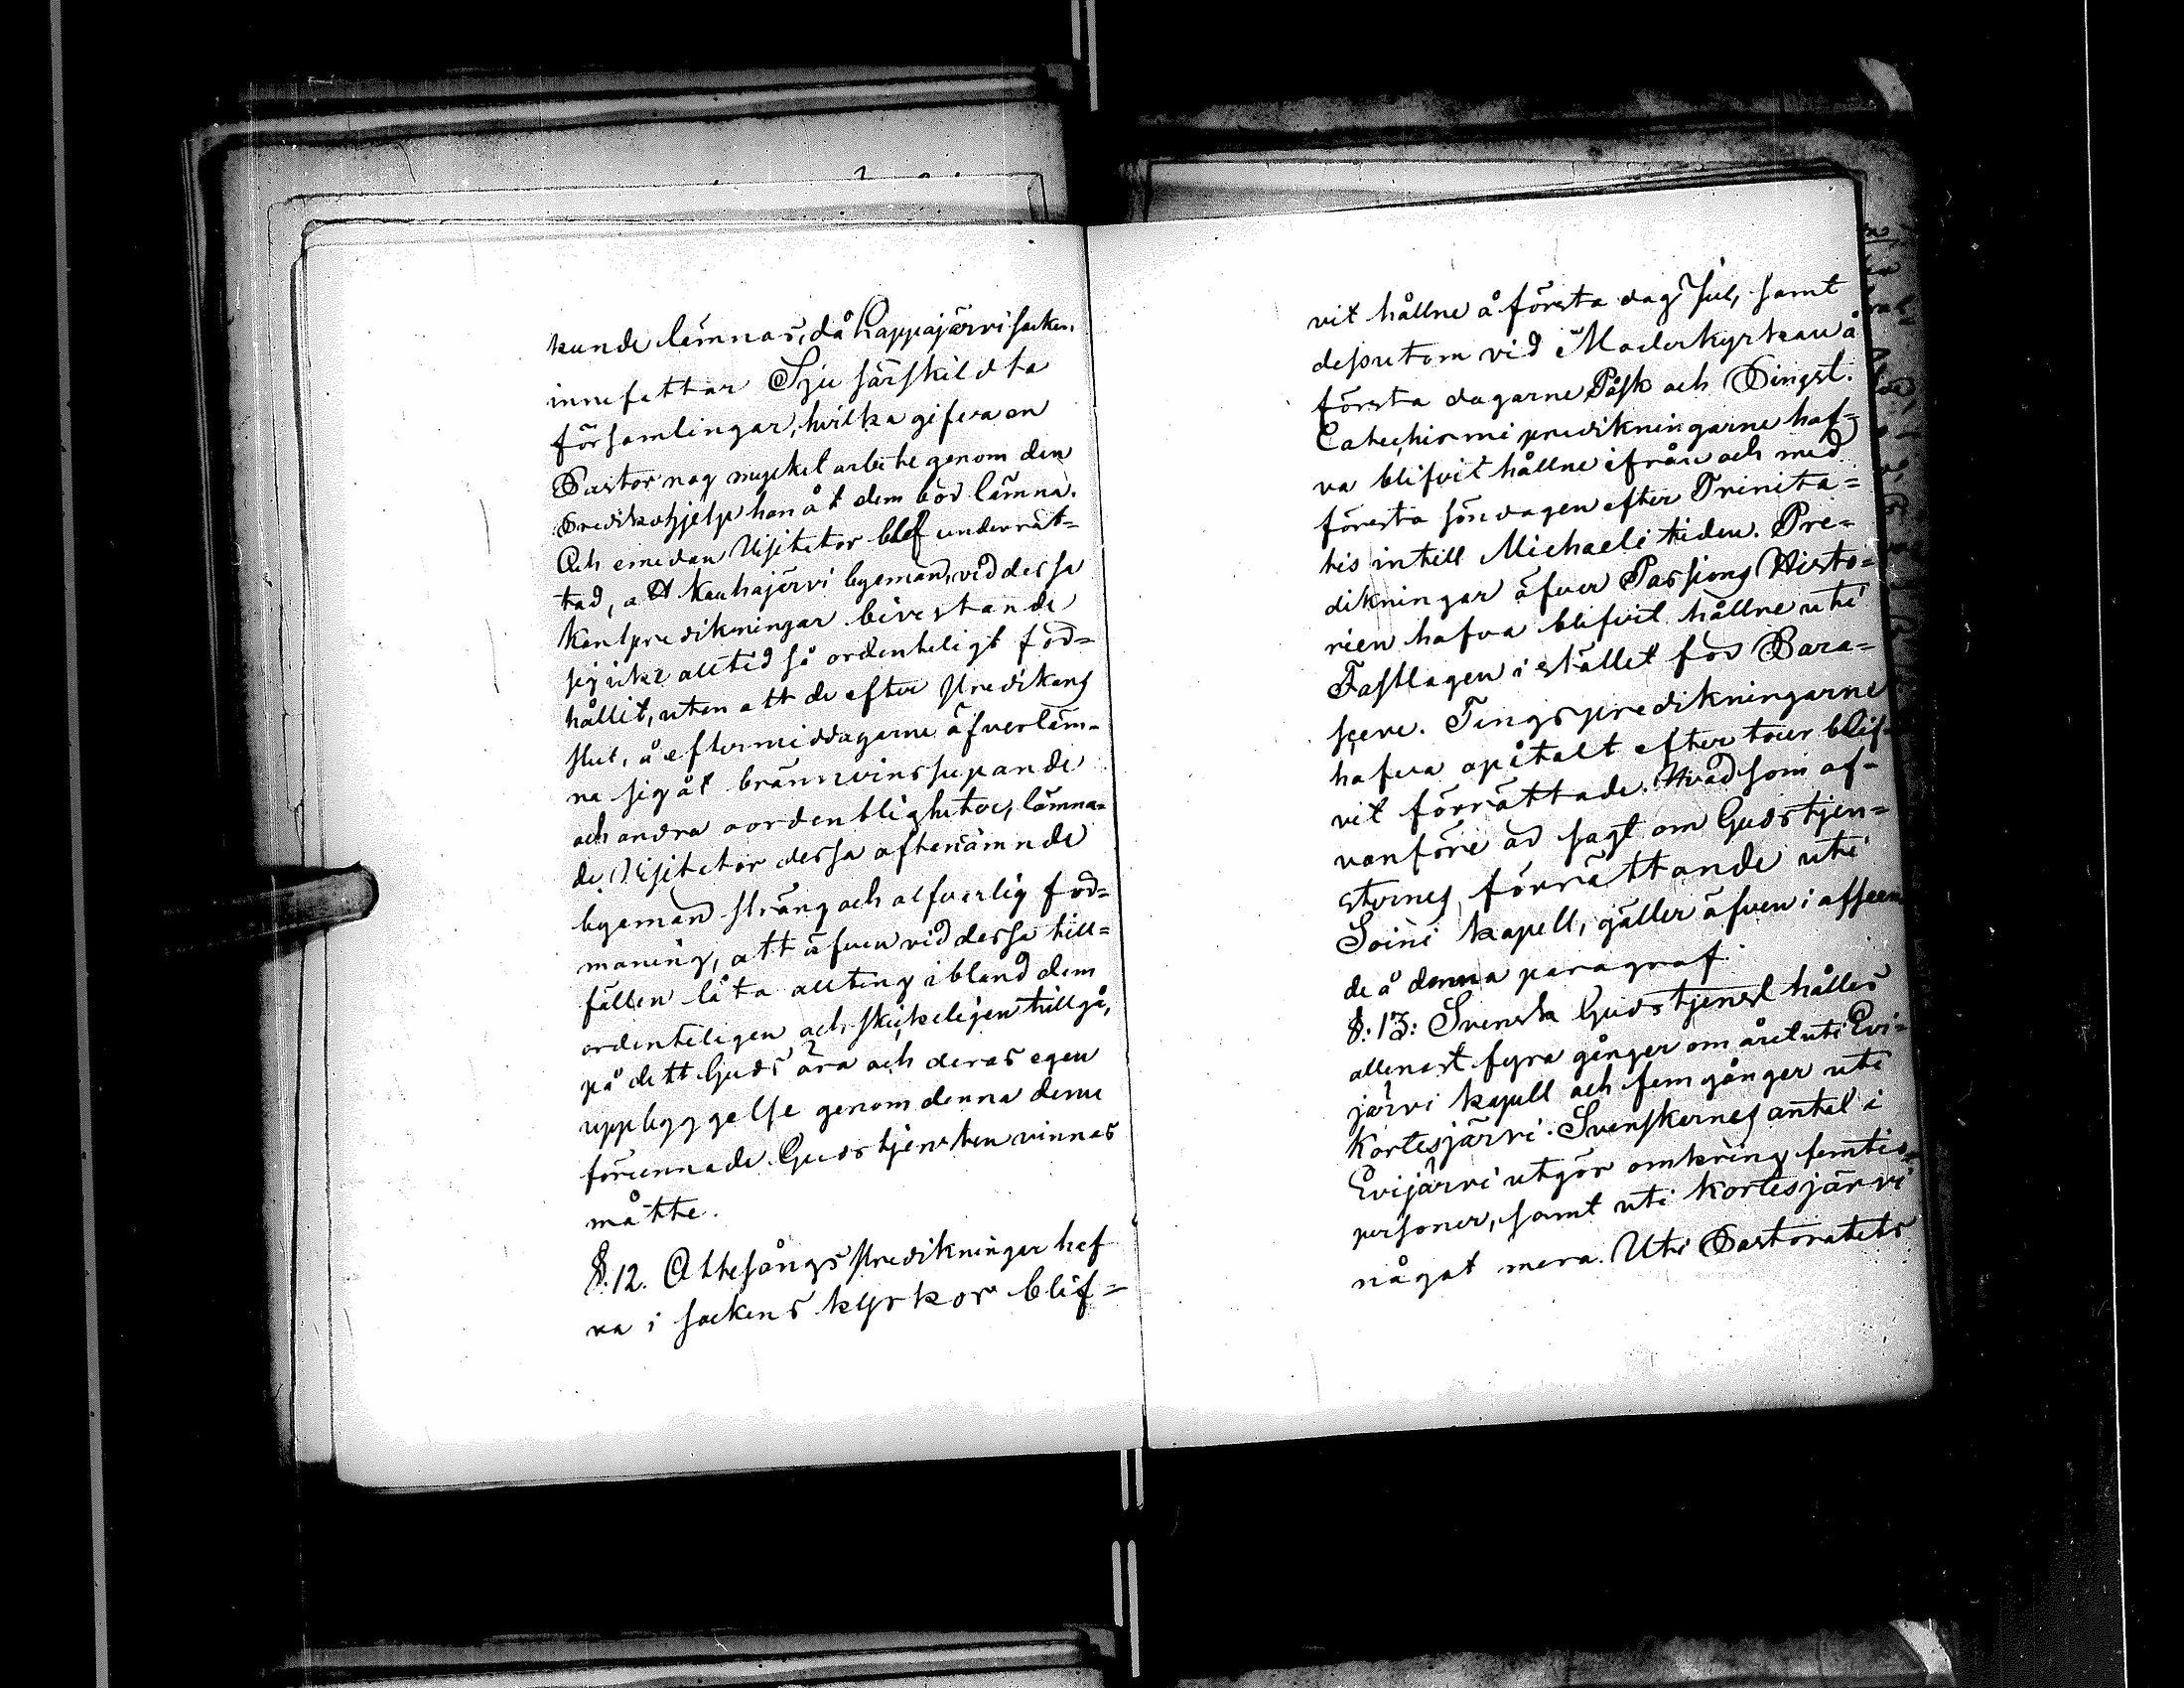 kunde lämnas, då Lappajärvi socken
innefattar Sju särskildta
församlingar, hvilka gifva en
Pastor nog myckel arbete genom den
Predikohjelp han åt dem bör lämna.
Och emedan Visitator blef underrät-
tad, att Kauhajärvi byamän, vid dessa
kentpredikningar bivistande
sig icke alltid så ordenteligt för-
hållit, uten att de efter Predikans
slut, å eftermiddagarne äfverläm-
na sig åt bränvinssupande
och andra oordentligheter, lämna-
de Visitator dessa oftenämnde
byamän sträng och alfvarlig för-
maning, att äfven vid dessa till-
fällen låta allting ibland dem
ordenteligen och skickeligen tillgå,
på dett Guds ära och deras egen
uppbyggelse genom denna dem
förunnade Gudstjensten vinnas
måtte.
§.12. Ottesångs Predikningar haf
va i sockens kyrkor blif=
vit hållne å första dag Jul, samt
dessutom vid Moderkyrkan å
första dagarne Påsk och Pingst.
Catechismi predikningarne haf=
va blifvit hållne ifrån och med
första söndagen efter Trinita=
tis intill Michaeli tiden. Pre=
dikningar äfver Passions Histo=
rien hafva blifvit hållne uti
Fastlagen i stället för Bara=
sceve. Tingspredikningarne
hafva opåtalt efter tour blif-
vit förrättade. Hvad som of-
vanföre är sagt om Gudstjen=
sternes förrättande uti
Soini kapell, gäller äfven i afseen
de å denna paragraf.
§:13: Svensk Gudstjenst hålles
allenast fyra gånger om året uti Evi-
järvi kapell och fem gånger uti
Kortesjärvi. Svenskernes antal i
Evijärvi utgör omkring femtio
personer, samt uti Kortesjärvi
något mera. Uti Pastoratets